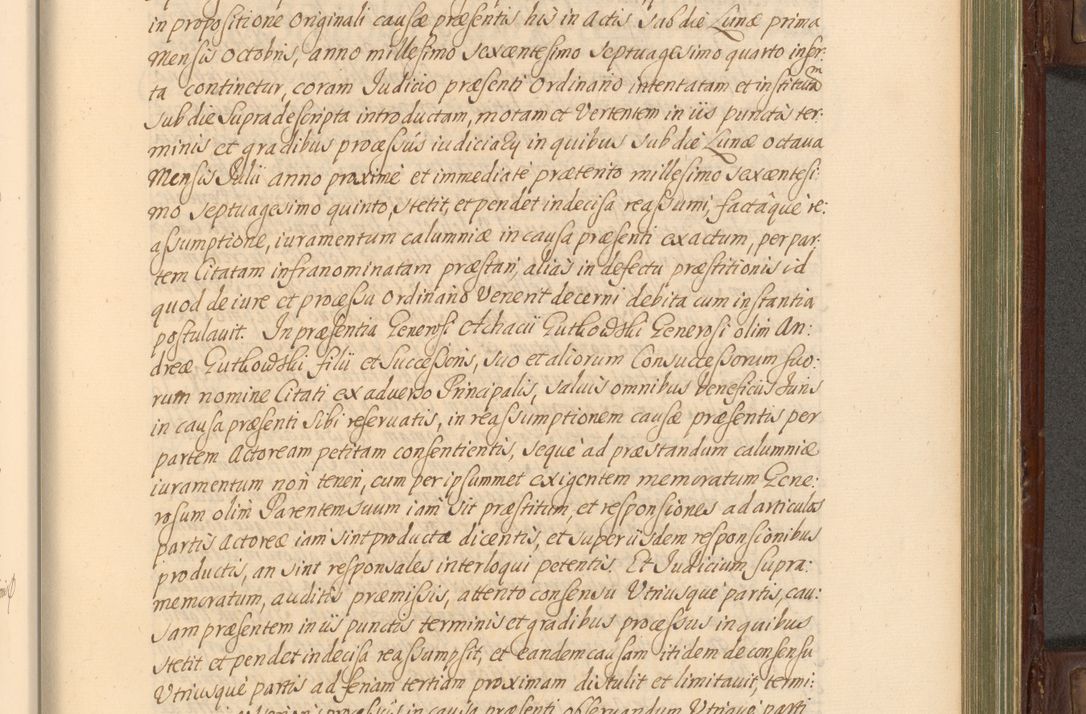 in propositione Originali causæ præsentis his in Actis sub die Lunæ prima
Mensis Octobris, anno millesimo sexcentesimo septuagesimo quarto infpr:
ta continetur, coram Iudicio præsenti Ordinario intentatam et institutam
sub die supra descripta introductam, motam et Vertentem in iis punctis ter:
minis et gradibus processus iudiciarÿ in quibus sub die Lunæ octaua
Mensis Iulii anno proximè et immediatè præterito millesimo sexcentesi:
mo septuagesimo quinto, stetit, et pendet indecisa reassumi, factáque re:
assumptione, iuramentum calumniæ in causa præsenti exactum, per par:
tem Citatam infranominatam præstari, aliàs in defectu præstitionis id
quod de iure et processu Ordinario Venerit decerni debita cum instantia
postulauit. In præsentia Generosi Achacii Gutkowski Generosi olim An:
dreæ Gutkowski filii et Successoris, suo et aliorum Consuccessorum suo:
rum nomine Citati ex aduerso Principalis, saluis omnibus beneficiis Iuris
in causa præsenti sibi reseruatis, in reassumptionem causæ præsentis per
partem Actoream petitam consentientis, seque ad præstandum calumniæ
iuramentum non teneri, cum per ipsummet exigentem memoratum Gene:
rosum olim Parentem suum iam sit præstitum, et responsiones ad articulos
partis Actoreæ iam sint productæ dicentis, et super iisdem responsionibus
productis, an sint responsales interloqui petentis. Et Iudicium supra:
memoratum, auditis præmissis, attento consensu Utriusque partis, cau:
sam præsentem in iis punctis terminis et gradibus processus in quibus
stetit et pendet indecisa reassumpsit, et eandem causam itidem de consensu
Utriusque partis ad feriam tertiam proximam distulit et limitauit, termi:
in causa præsenti obseruandum Utrique parti